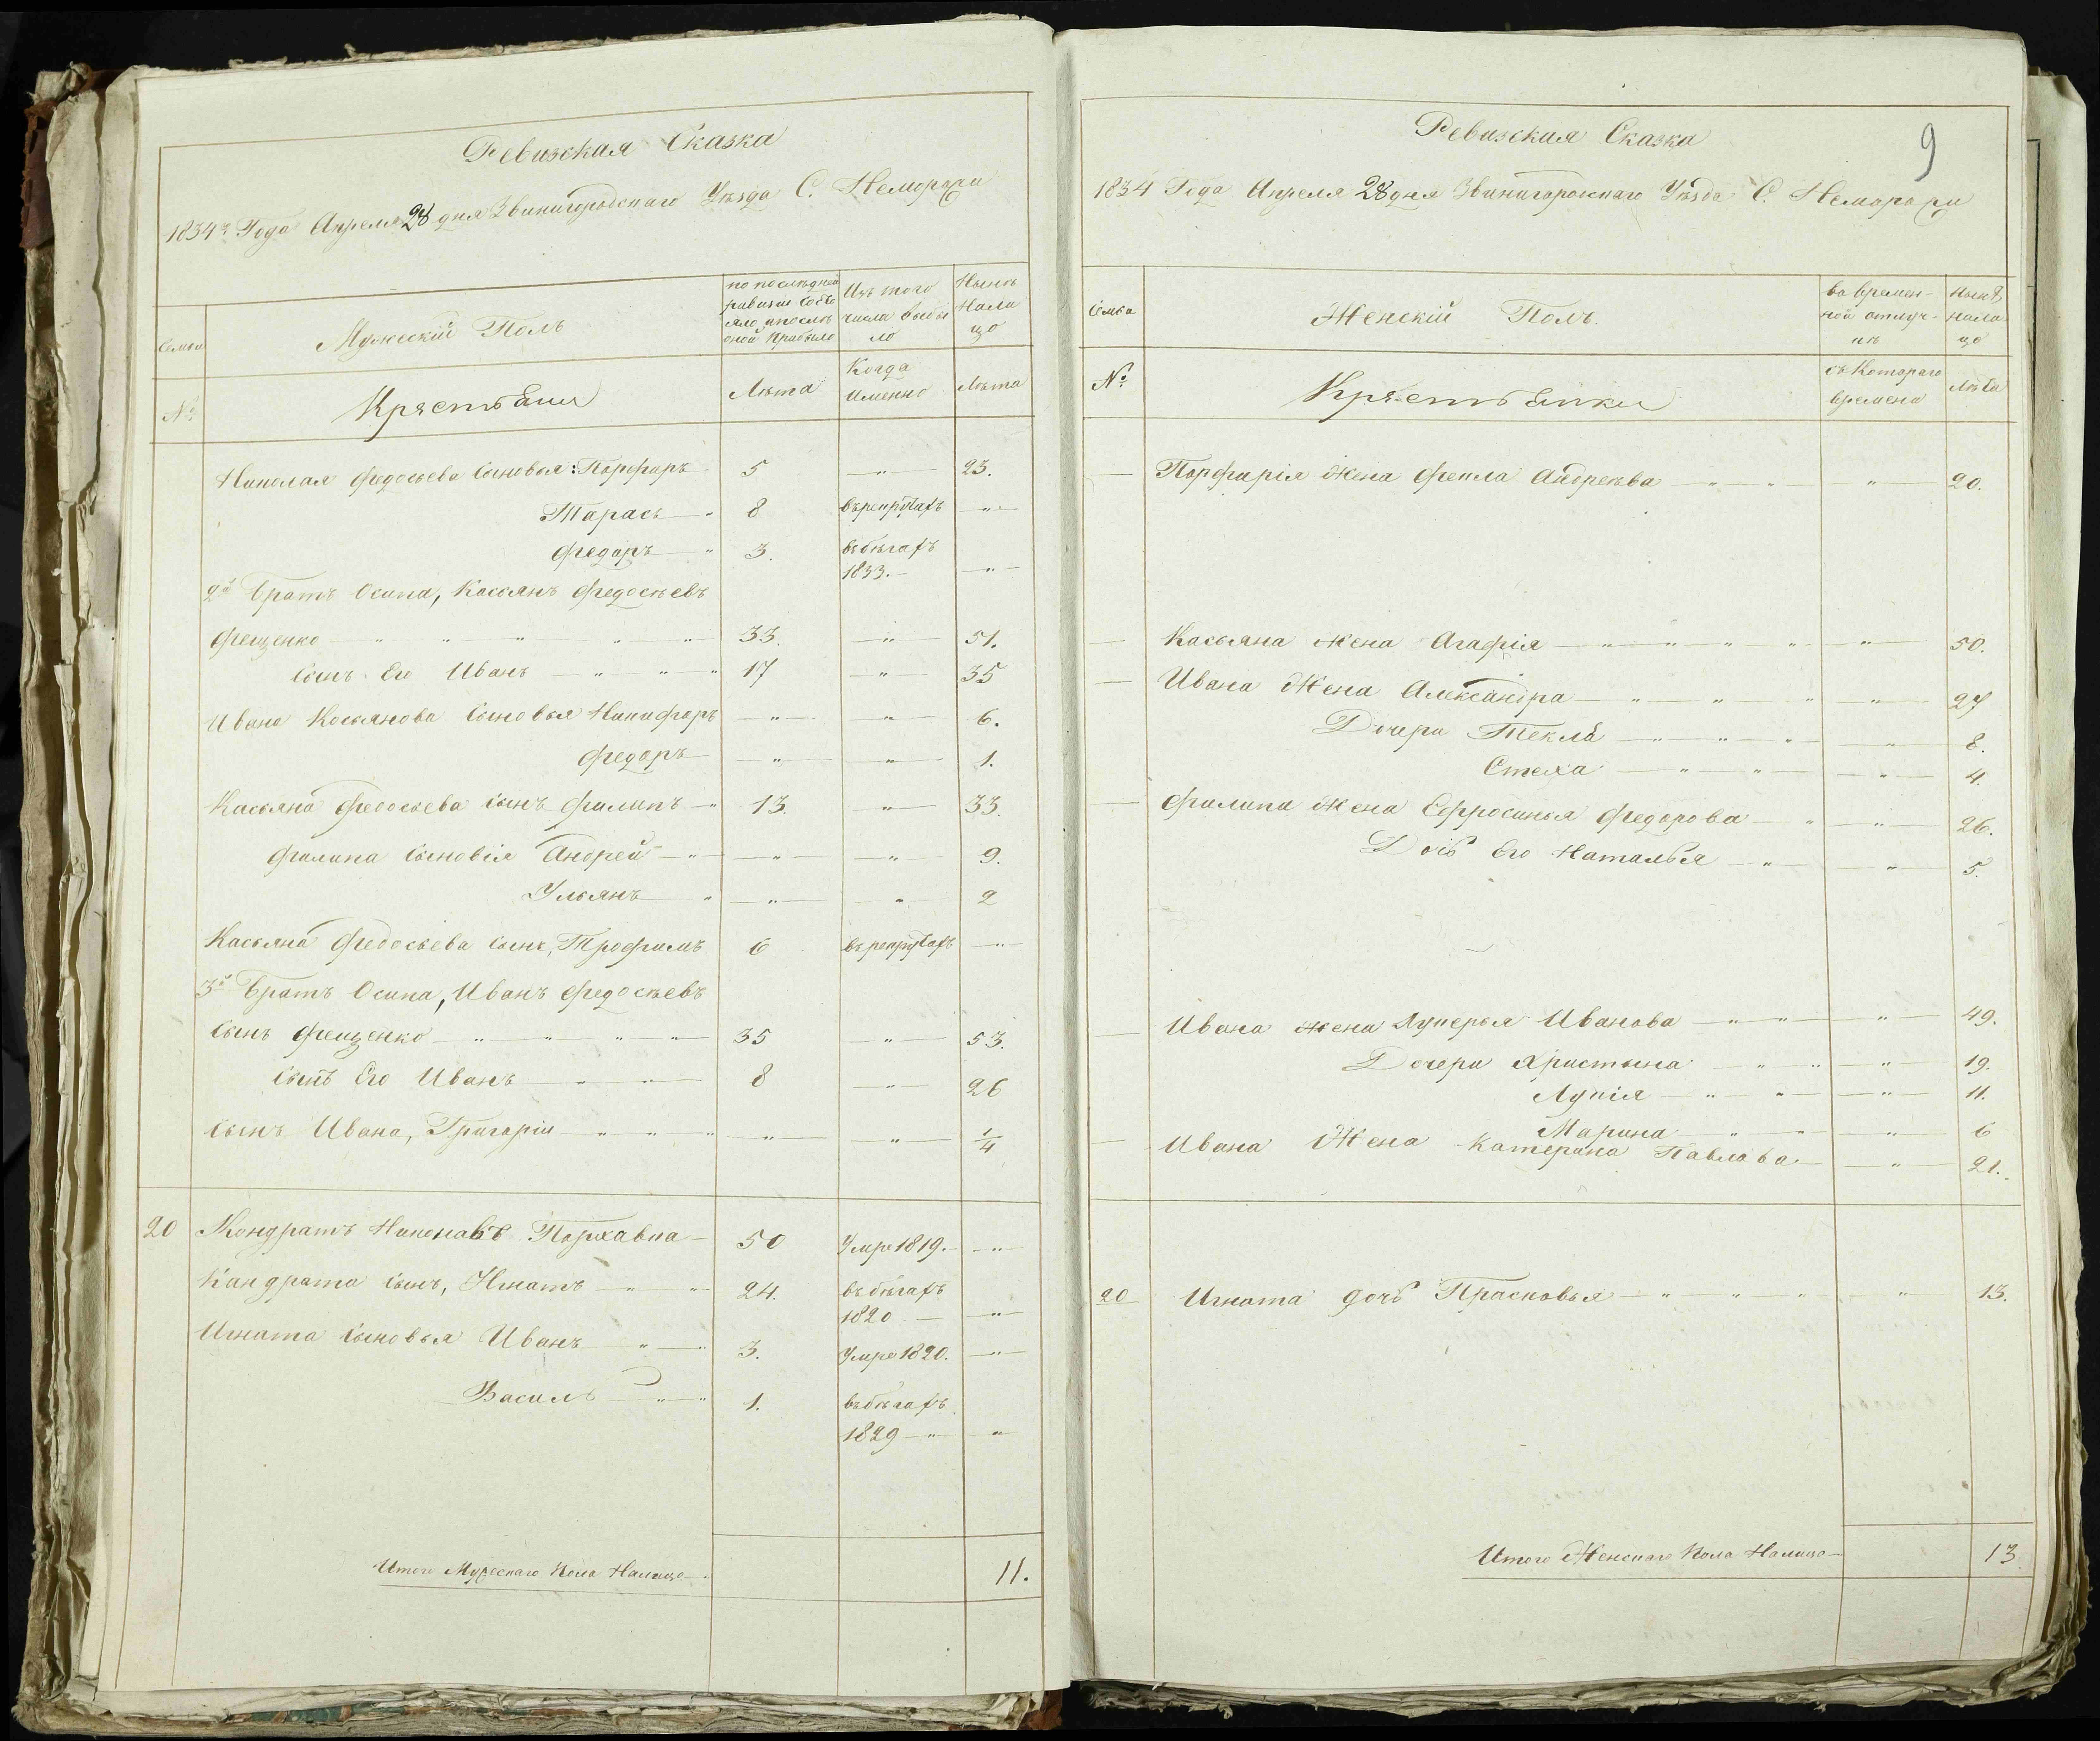 Ревизская Сказка
1834го Года Апреля 28 дня Звинигородскаго Уѣзда С. Неморожи
Семьи
Мужеский Полъ
по последней
ревизии состо
яло и после
оной прибыло
Изъ того
числа выбы
ло
Нынѣ
Нали
цо
№
Крястьяни
Лѣта
Когда
именно
Лѣта
Николая Федосьева Сыновья: Порфиръ 5 — " — 23.
Тарасъ — " 8 въ рекрутахъ — " —
Федоръ — " 3. въ бѣгахъ
1833. — — " —
2й Братъ Осипа, Касьянъ Федосѣевъ
Фещенко — " " " " " — 33. — " — 51.
Сынъ Его Иванъ — " " — " 17 — " — 35
Ивана Косьянова Сыновья Никифоръ — " — " — 6.
Федоръ — " — " — 1.
Касьяна Федосьева Сынъ Филипъ — " 13. " — 33.
Филипа Сыновія Андрей — " — " — " — 9.
Ульянъ — " — " — " 2
Касьяна Федосьева Сынъ, Трофимъ 6 въ рекрутахъ — " —
3й Братъ Осипа, Иванъ Федосѣевъ
Сынъ Фещенко — " — " — " — " — 35 — " — 53.
Сынъ Его Иванъ — " — " — 8 — " — 26
Сынъ Ивана, Григорiи — " — " — " — " — " — 1/4
20 Кондратъ Никонавъ Пархавна — 50 Умре 1819. — — " —
Кандрата Сынъ, Игнатъ — " — " 24. въ бѣгахъ
1820 — — " —
Игната Сыновья Иванъ — " — " 3. Умре 1820. — " —
Василь — " — " 1. въ бѣгахъ
1829 — " — "
Итого Мужескаго Пола Налицо — 11.
Ревизская Сказка
9
1834 Года Апреля 28 дня Звинигородскаго Уѣзда С. Неморожи
Семьа
Женскій Полъ.
во времен-
ной отлуч-
кѣ
Нынѣ
нали
цо
№
Крястьянки
съ Котораго
времени
Лѣта
— Порфирія Жена Фекла Андреѣва — " — " — — " — 20.
— Касьяна Жена Агафія — " — " — " — " — " — 50.
— Ивана Жена Александра — " — " — " — " — 27
Дочери Текла — " — " — " — " — 8.
Стеха — " — " — — " — 4.
— Филипа Жена Ефросинья Федорова — " — " — 26.
Дочь Его Наталья — " — — " — 5.
— Ивана жена Лукерья Иванова — " — " — " — 49.
Дочери Христына — " — " — " — 19.
Лукія — " — " — — " — 11.
Марина — " — " — " — 6
— Ивана Жена Катерина Павлова — — " — 21.
20 Игната дочь Прасковья — " — " — " — " — 13.
Итого Женскаго Пола Налицо — 13